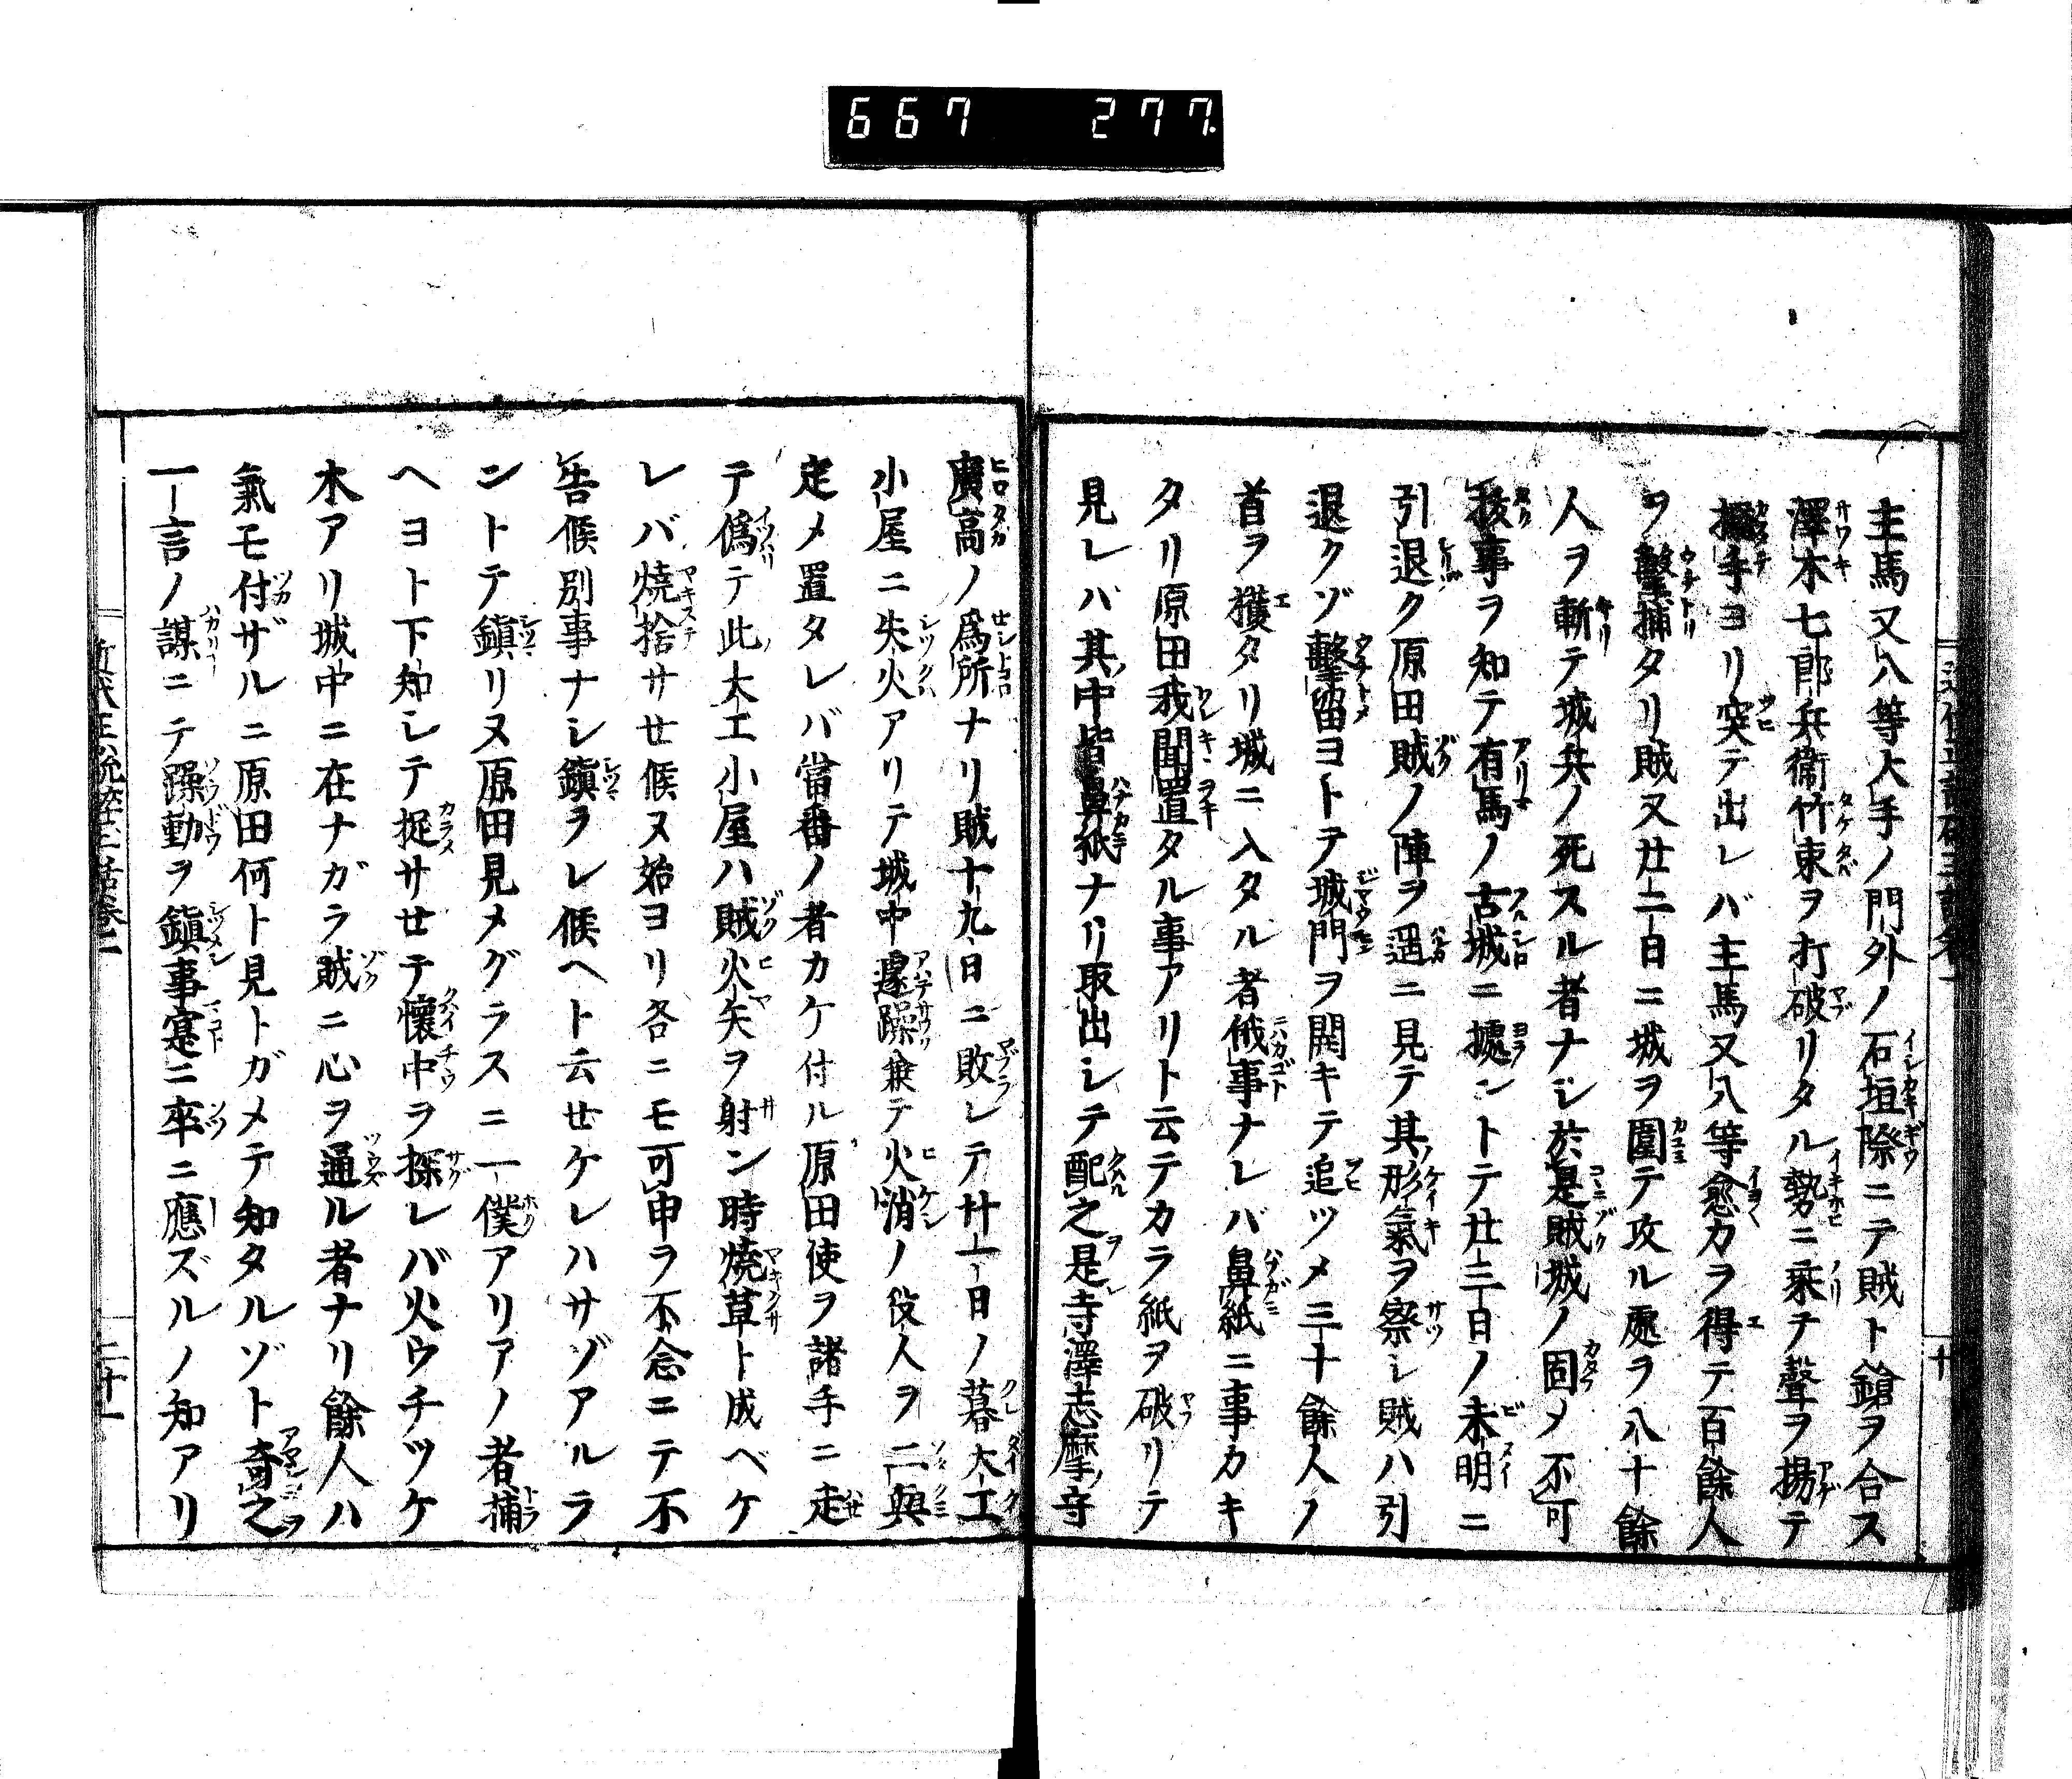 667 277
主馬又八等大手ノ門外ノ石垣際ニテ賊ト鎗ヲ合ス
澤木七郎兵衞竹束ヲ打破リタル勢ニ乘テ聲ヲ揚テ
搦手ヨリ突テ出レバ主馬又八等愈カラ得テ百餘人
ヲ擊捕タリ賊又廿二日ニ城ヲ圍テ攻ル處ヲ八十餘
人ヲ斬テ城兵ノ死スル者ナシ於是賊城ノ固メ不可
拔事ヲ知テ有馬ノ古城ニ據ントテ廿三日ノ未明ニ
引退ク原田賊ノ陣ヲ遥ニ見テ其形氣ヲ察シ賊ハ引
退クゾ擊留ヨトテ城門ヲ開キテ追ツメ三十餘人ノ
首ヲ獲タリ城ニ入タル者俄事ナレバ鼻紙ニ事カキ
タリ原田我聞置タル事アリト云テカラ紙ヲ破リテ
見レハ其中皆鼻紙ナリ取出シテ配之是寺澤志摩守
廣高ノ爲所ナリ賊十九日ニ敗レテ廿一日ノ暮大工
小屋ニ失火アリテ城中遽躁兼テ火消ノ役人ヲ二與
定メ置タレバ當番ノ者カケ付ル原田使ヲ諸手ニ走
テ僞テ此大工小屋ハ賊火矢ヲ射ン時燒草ト成ベケ
レバ燒捨サセ候ヌ始ヨリ各ニモ可申ヲ不念ニテ不
告候別事ナシ鎭ラレ候ヘト云セケレハサゾアルラ
ントテ鎭リヌ原田見メグラスニ一僕アリアノ者捕
ヘヨト下知シテ捉サセテ懷中ヲ探レバ火ウチツケ
木アリ城中ニ在ナガラ賊ニ心ヲ通ル者ナリ餘人ハ
氣モ付ザルニ原田何ト見トガメテ知タルゾト奇之
一言ノ謀ニテ躁動ヲ鎭事寔ニ卒ニ應ズルノ知アリ
二十一